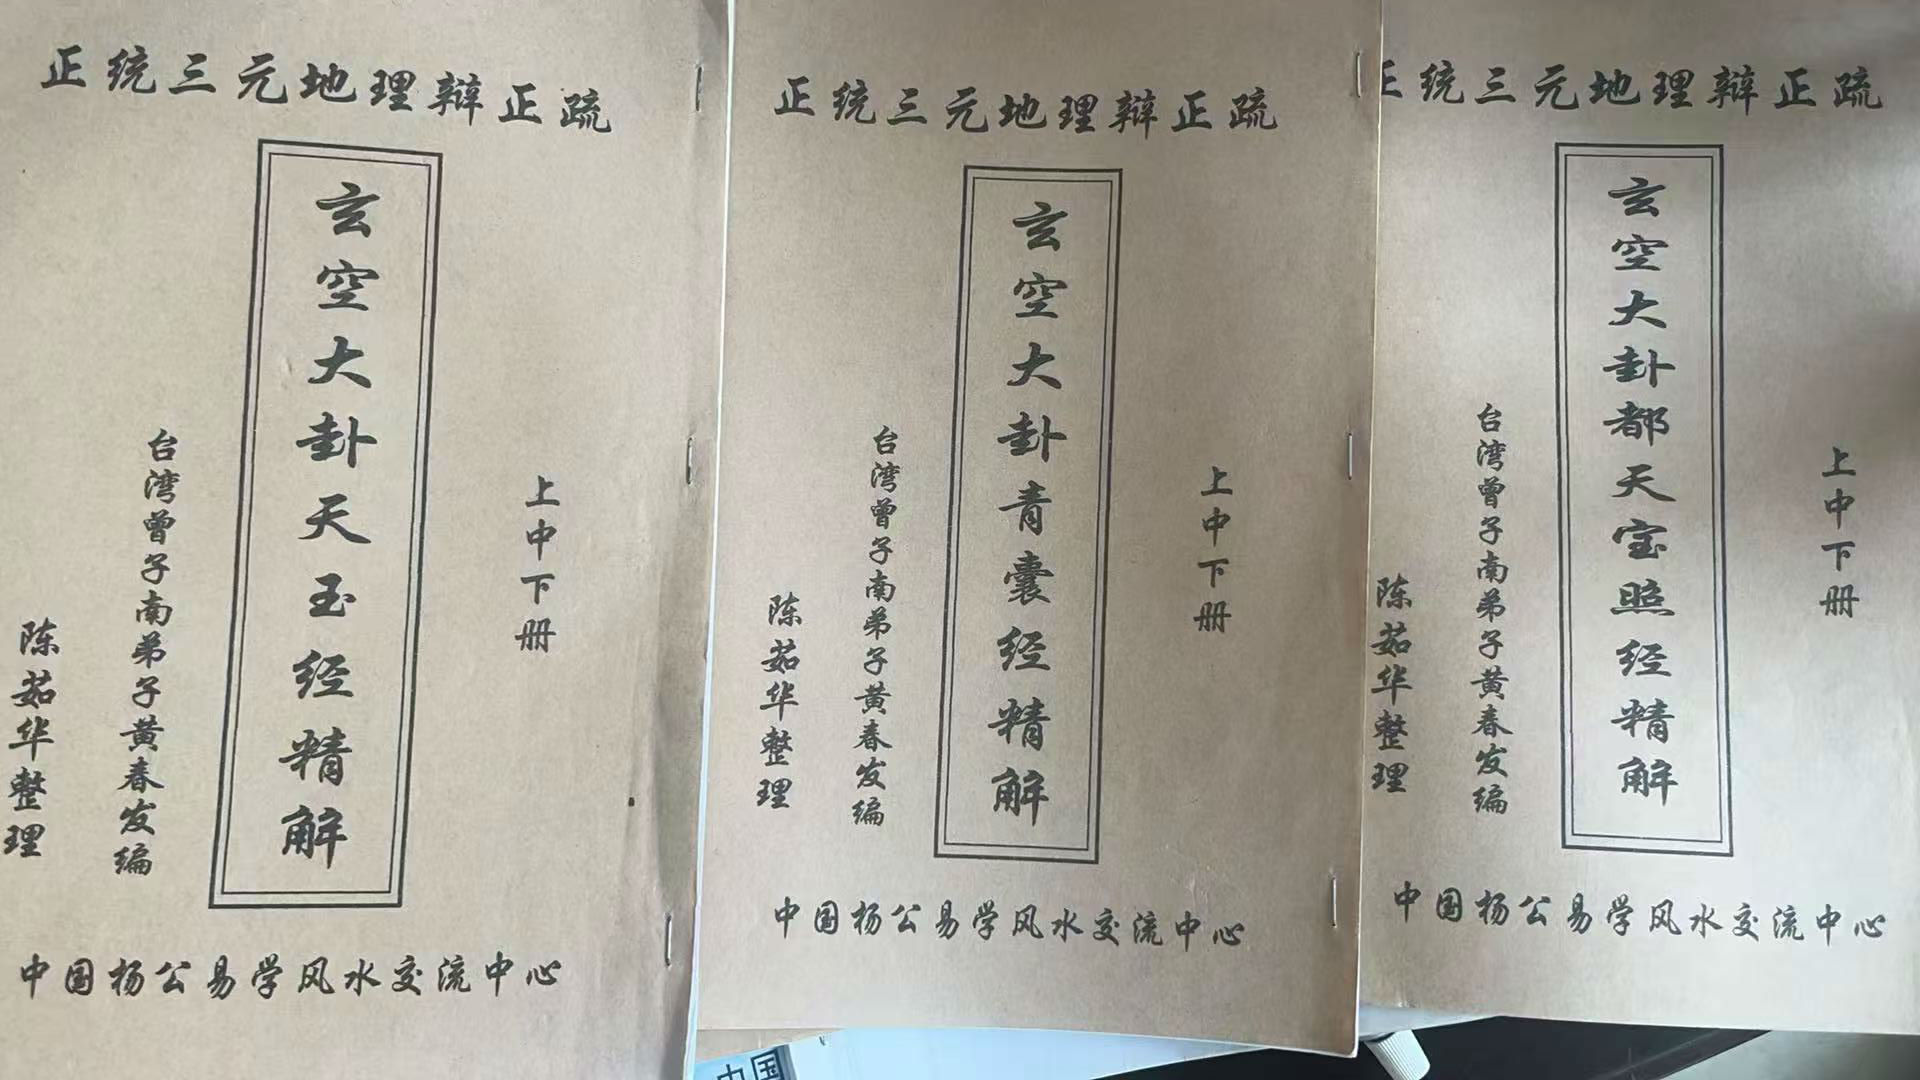 正统三元地理辩正疏
上中下册
玄空大卦天玉经精解
台湾曾子南弟子黄春发编
陈茹华整理
中国杨公易学风水交流中心
正统三元地理辩正疏
上中下册
玄空大卦青囊经精解
台湾曾子南弟子黄春发编
陈茹华整理
中国杨公易学风水交流中心
正统三元地理辩正疏
上中下册
玄空大卦都天宝照经精解
台湾曾子南弟子黄春发编
陈茹华整理
中国杨公易学风水交流中心
中国